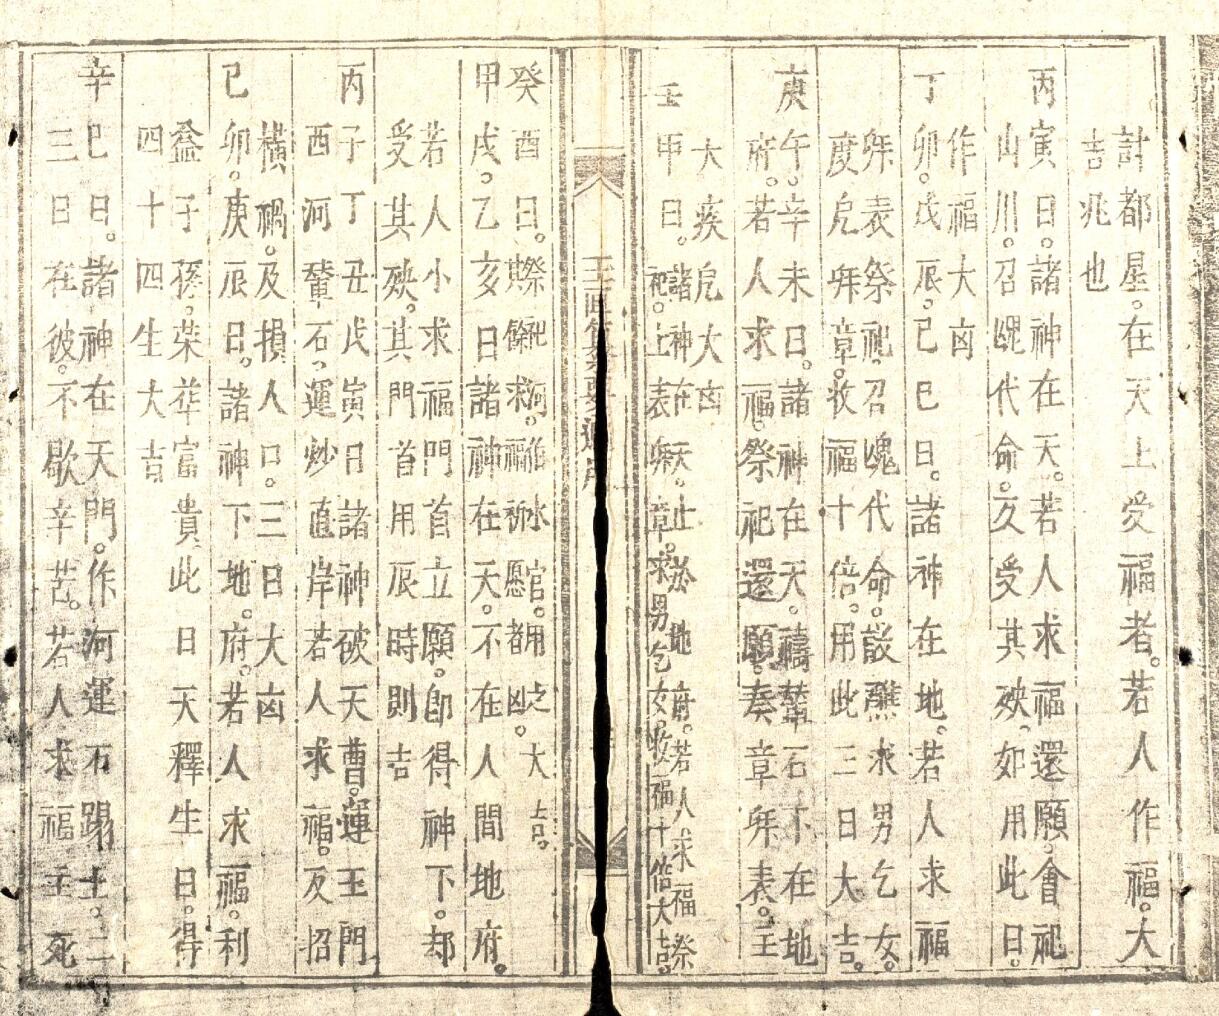 計都星。在天上受福者。若人作福。大
吉兆也
丙寅日。諸神在天。若人求福還願。會祀
山川。召䰟代命。久受其殃。如用此日。
作福大凶
丁卯。戊辰。己巳日。諸神在地。若人求福
㷠表祭祀。召魂代命。設醮求男乞女。
度兇㷠章。收福十倍。用此三日大吉。
庚午。辛未日。諸神在天。禱輦石不在地
府。若人求福。祭祀還願。奏章㷠表。主
大疾兇大凶
壬申日。諸神在天止於地府。若人求福祭
祀。上表㷠章。求男乞女。收福十倍大吉。
癸酉日。祭祀河伯水官。用之大吉。
餘求福祈愿者凶。
甲戌。乙亥日諸神在天。不在人間地府。
若人小求福門首立願。卽得神下。却
受其殃。其門首用辰時則吉
丙子丁丑戊寅日諸神彼天曹。運玉門
西河輦石、運炒直岸若人求福。反招
橫禍。及損人口。三日大凶
己卯。庚辰日。諸神下地。府。若人求福。利
益子孫。榮華富貴此日天釋生日。得
四十四生大吉
辛巳日。諸神在天門。作河運石踢土。二
三日在彼。不歇辛苦。若人求福主死